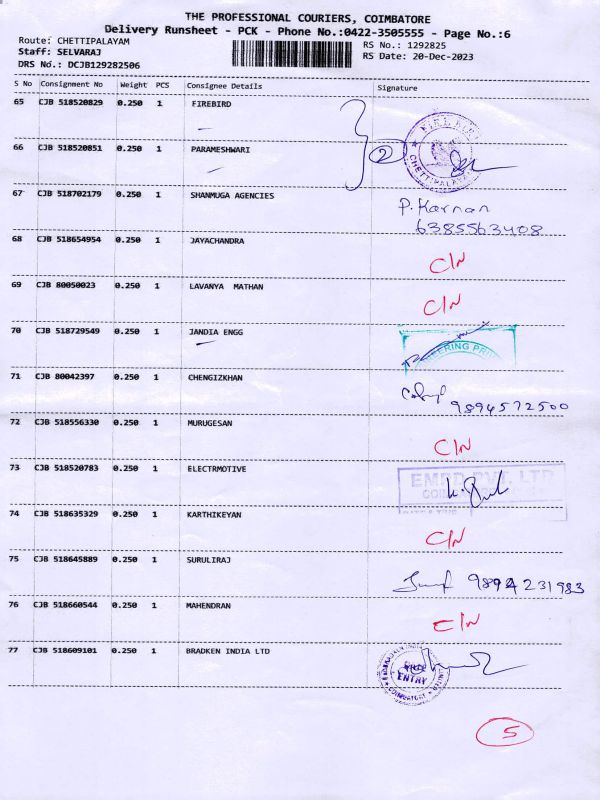 THE PROFESSIONAL COURIERS, COIMBATORE
Delivery Runsheet - PCK - Phone No.:0422-3505555 - Page No.:6
Route: CHETTIPALAYAM
RS No.: 1292825
Staff: SELVARAJ
RS Date: 20-Dec-2023
DRS No.: DCJB129282506
S No Consignment No Weight PCS Consignee Details Signature
65 CJB 518520829 0.250 1 FIREBIRD
66 CJB 518520851 0.250 1 PARAMESHWARI 2 CHETTIPALAYA
67 CJB 518702179 0.250 1 SHANMUGA AGENCIES P. Karnan
6385563408
68 CJB 518654954 0.250 1 JAYACHANDRA C/N
69 CJB 80050023 0.250 1 LAVANYA MATHAN C/N
70 CJB 518729549 0.250 1 JANDIA ENGG EERING PRI
71 CJB 80042397 0.250 1 CHENGIZKHAN
9894572500
72 CJB 518556330 0.250 1 MURUGESAN C/N
73 CJB 518520783 0.250 1 ELECTRMOTIVE PVT. LTD
74 CJB 518635329 0.250 1 KARTHIKEYAN C/N
75 CJB 518645889 0.250 1 SURULIRAJ 9894231983
76 CJB 518660544 0.250 1 MAHENDRAN C/N
77 CJB 518609101 0.250 1 BRADKEN INDIA LTD ENTRY COIMBATORE
5